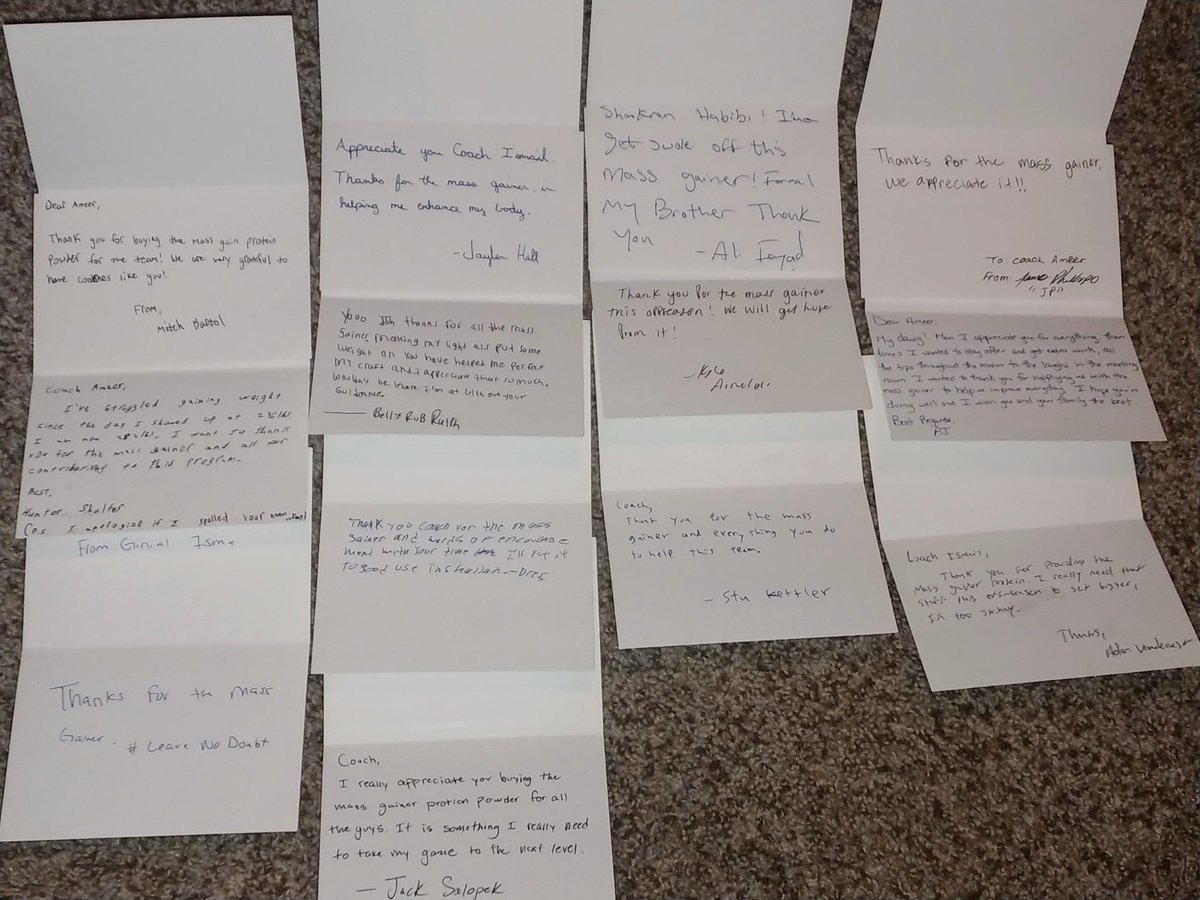 Dear Ameer,
Thank you for buying the mass gain protein
powder for the team! We are very grateful to
have coaches like you!
From,
Mitch Bartol
Coach Ameer,
I've struggled gaining weight
since the day I showed up at
I am now I want to thank
you for the mass gainer and all your
to this program.
Best,
Hunter Shulter
(P.S. I apologize if I spelled your name wrong)
From: Ginial Isma
Thanks for the mass
Gainer. # Leave No Doubt
Appreciate you Coach Ismail.
Thanks for the mass gainer, in
helping me enhance my body.
-Jaylen Hall
Yooo Ish thanks for all the mass
Gainer making my light ass put some
weight on. You have helped me perfect
my craft and I appreciate that so much.
Wouldn't be where I'm at without your
Guidance.
Belly Rub
Thank you Coach for the mass
gainer and words of encourage
ment with your time I'll put it
to good use inshallah. - Dres
Coach,
I really appreciate you buying the
mass gainer protien powder for all
the guys. It is something I really need
to take my game to the next level.
- Jack Salopek
Shookran Habibi! I'ma
get swole off this
mass gainer! Foreal
My Brother Thank
You
- Ali Fayad
Thank you for the mass gainer
this offseason! We will get huge
from it!
- Kyle
Thanks for the mass gainer.
We appreciate it!!
To: Coach Ameer
From:
"JP"
Dear Ameer,
My dawg! Man I appreciate you for everything. From
times I wanted to stay after and get extra work, all
the tips throughout the season to the laughs in the meeting
room. I wanted to thank you for supplying us with the
mass gainer to help us improve everything. I hope you're
doing well and I wish you and your family the best
Best Regards,
AJ
Coach,
Thank you for the mass
gainer and everything you do
to help this team.
- Stu Kettler
Coach Ismail,
Thank you for providing the
mass gainer protein. I really need that
stuff this off-season to get bigger,
I'm too skinny.
Thanks,